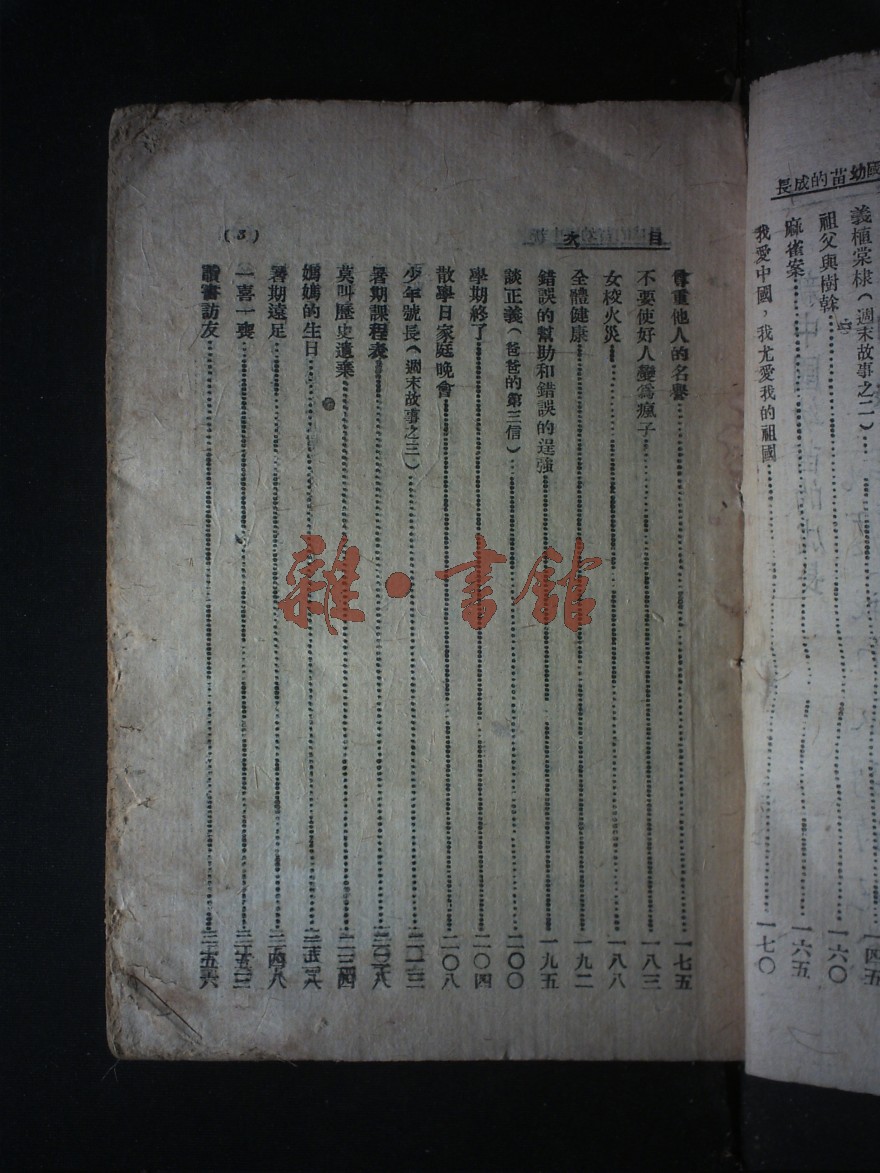 國幼苗的成長
義植棠棣（週末故事之二）……一四五
祖父與樹幹……一六〇
麻雀案……一六五
我愛中國，我尤愛我的祖國……一七〇
目次
尊重他人的名譽……一七五
不要使好人變為瘋子……一八三
女校火災……一八八
全體健康……一九二
錯誤的幫助和錯誤的逞強……一九五
談正義（爸爸的第三信）……二〇〇
學期終了……二〇四
散學日家庭晚會……二〇八
少年號長（週末故事之三）
暑期課程表
莫叫歷史遺棄
媽媽的生日
暑期遠足
一喜一喪
讀書訪友
(3)
雜·書館